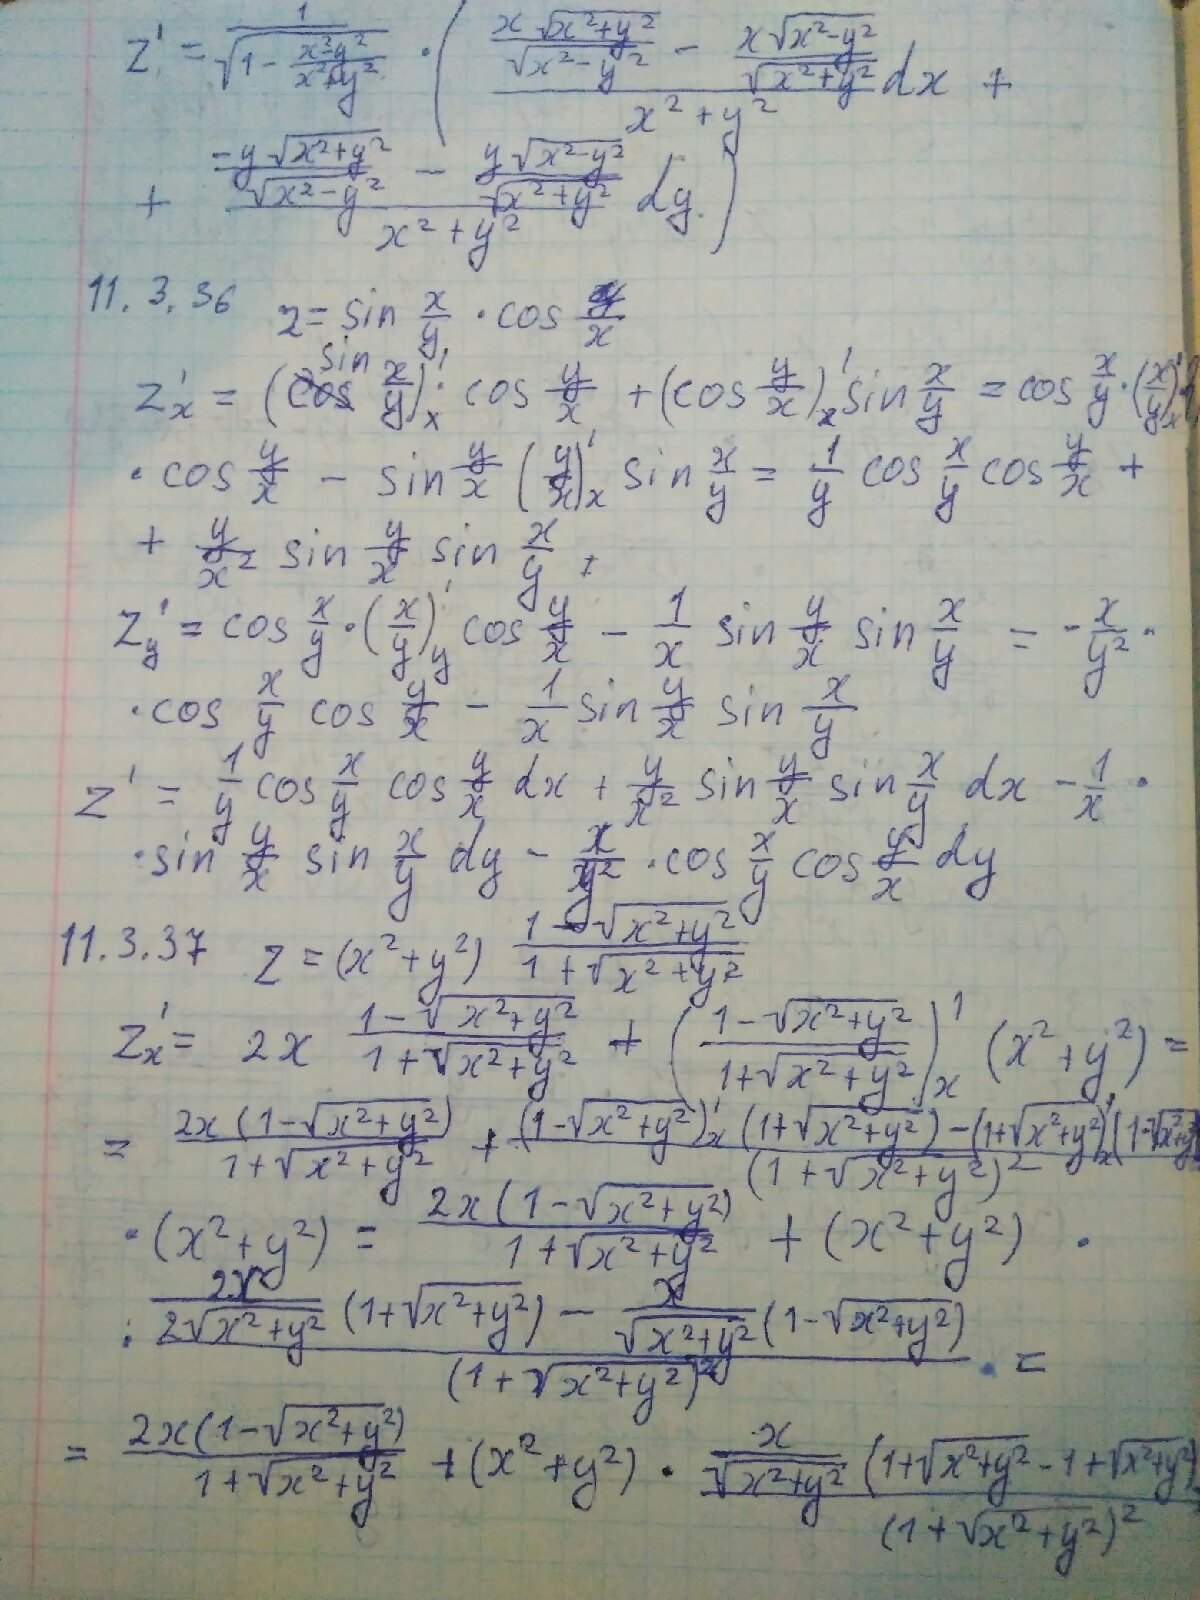 z' = 1/√(1 - (x²-y²)/(x²+y²)) · ( ( x√(x²+y²)/√(x²-y²) - x√(x²-y²)/√(x²+y²) )/(x²+y²) dx +
+ ( -y√(x²+y²)/√(x²-y²) - y√(x²-y²)/√(x²+y²) )/(x²+y²) dy )
11.3.36 z = sin x/y · cos y/x
z'ₓ = (sin x/y)'ₓ · cos y/x + (cos y/x)'ₓ sin x/y = cos x/y · (x/y)'ₓ ·
· cos y/x - sin y/x (y/x)'ₓ sin x/y = 1/y cos x/y cos y/x +
+ y/x² sin y/x sin x/y ,
z'_y = cos x/y · (x/y)'_y cos y/x - 1/x sin y/x sin x/y = - x/y² ·
· cos x/y cos y/x - 1/x sin y/x sin x/y
z' = 1/y cos x/y cos y/x dx + y/x² sin y/x sin x/y dx - 1/x ·
· sin y/x sin x/y dy - x/y² · cos x/y cos y/x dy
11.3.37 z = (x²+y²) (1-√(x²+y²))/(1+√(x²+y²))
z'ₓ = 2x (1-√(x²+y²))/(1+√(x²+y²)) + ( (1-√(x²+y²))/(1+√(x²+y²)) )'ₓ (x²+y²) =
= 2x(1-√(x²+y²))/(1+√(x²+y²)) + ( (1-√(x²+y²))'ₓ (1+√(x²+y²)) - (1+√(x²+y²))'ₓ (1-√(x²+y²)) )/(1+√(x²+y²))²
· (x²+y²) = 2x(1-√(x²+y²))/(1+√(x²+y²)) + (x²+y²) ·
· ( 2x/(2√(x²+y²)) (1+√(x²+y²)) - x/√(x²+y²) (1-√(x²+y²)) )/(1+√(x²+y²))² · =
= 2x(1-√(x²+y²))/(1+√(x²+y²)) + (x²+y²) · ( x/√(x²+y²) (1+√(x²+y²) - 1+√(x²+y²)) )/(1+√(x²+y²))²